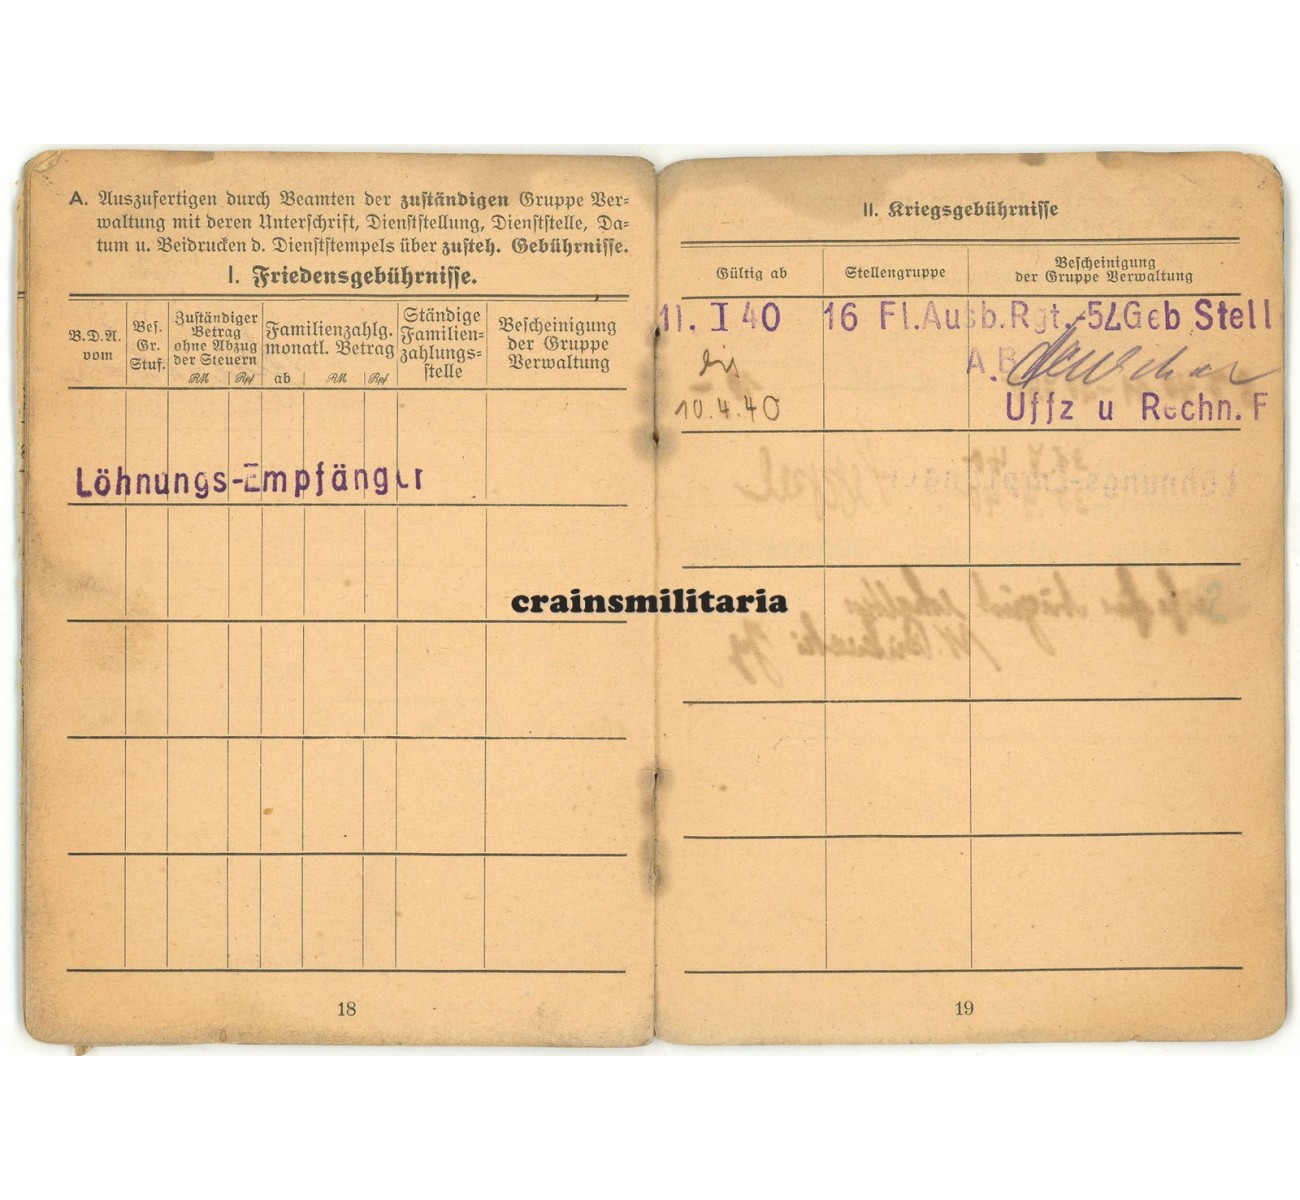 A. Auszufertigen durch Beamten der zuständigen Gruppe Ver=
waltung mit deren Unterschrift, Dienststellung, Dienststelle, Da=
tum u. Beidrucken d. Dienststempels über zusteh. Gebührnisse.
I. Friedensgebührnisse.
B.D.A.
vom
Bes.
Gr.
Stuf.
Zuständiger
Betrag
ohne Abzug
der Steuern
RM Rpf
Familienzahlg.
monatl. Betrag
ab RM Rpf
Ständige
Familien=
zahlungs=
stelle
Bescheinigung
der Gruppe
Verwaltung
Löhnungs-Empfänger
18
II. Kriegsgebührnisse
Gültig ab
Stellengruppe
Bescheinigung
der Gruppe Verwaltung
11. I 40 16 Fl.Ausb.Rgt.-52Geb Stell
bis
A.B
10.4.40
Uffz u Rechn.F
19
crainsmilitaria